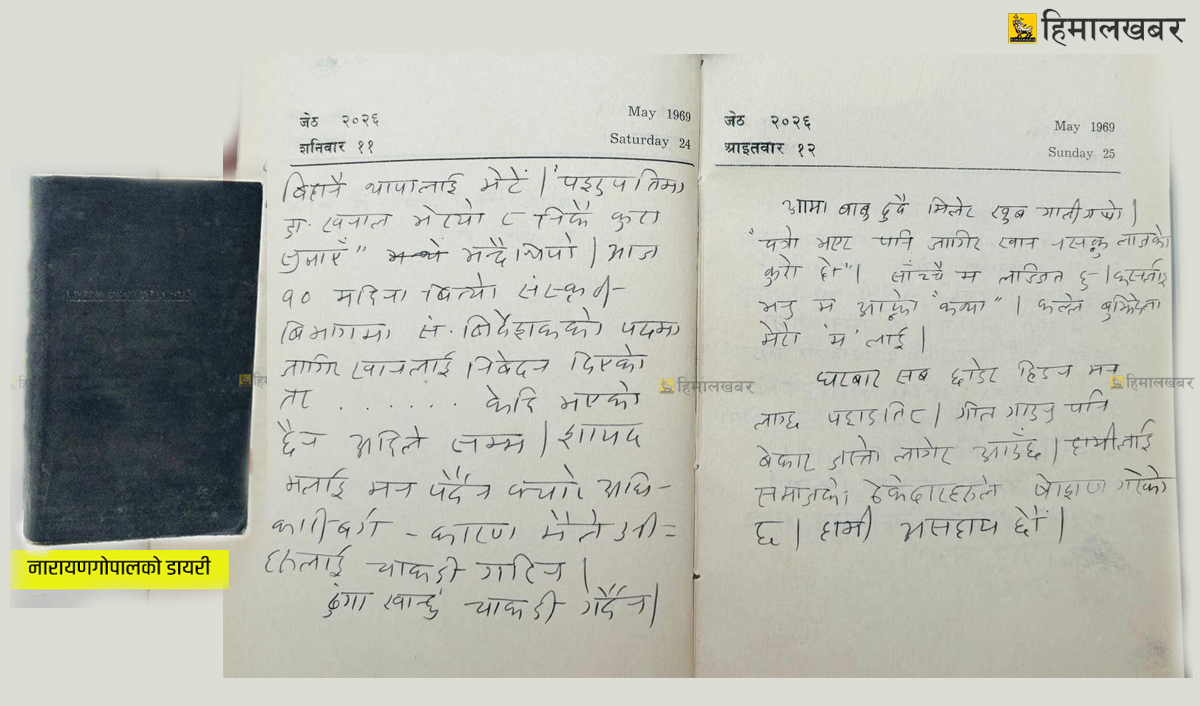 हिमालखबर
जेठ २०२६ May 1969
शनिवार ११ Saturday 24
बिहानै थापालाई भेटें । "पशुपतिमा
डा. खनाल भेट्यो र निकै कुरा
सुनाएँ" भन्दैथियो । आज
१० महिना बित्यो संस्कृति-
बिभागमा सं. निर्देशकको पदमा
जागिर खानलाई निबेदन दिएको
तर . . . . . . . केहि भएको
छैन अहिले सम्म । शायद
मलाई मन पर्दैन क्यारे अधि-
कारीबर्ग - कारण मैले उनी-
हरुलाई चाकडी गरिन ।
ढुंगा खान्छु चाकडी गर्दैन ।
जेठ २०२६ May 1969
आइतवार १२ Sunday 25
आमा बाबु दुबै मिलेर खुब गाली गर्‍यो ।
"यत्रो भएर पनि जागिर खान नसक्नु लाजको
कुरो हो" । साँच्चै म लाञ्छित छु ।
भन्नु म आफ्नो "कथा" । कल्ले बुझिदेला
मेरो 'म' लाई ।
घरबार सब छोडेर हिड्न मन
लाग्छ पहाडतिर । गीत गाउनु पनि
बेकार जस्तो लागेर आउँछ । हामीलाई
समाजका ठेकेदारहरुले शोषण गरेको
छ । हामी असहाय छौं ।
नारायणगोपालको डायरी
हिमालखबर
हिमालखबर